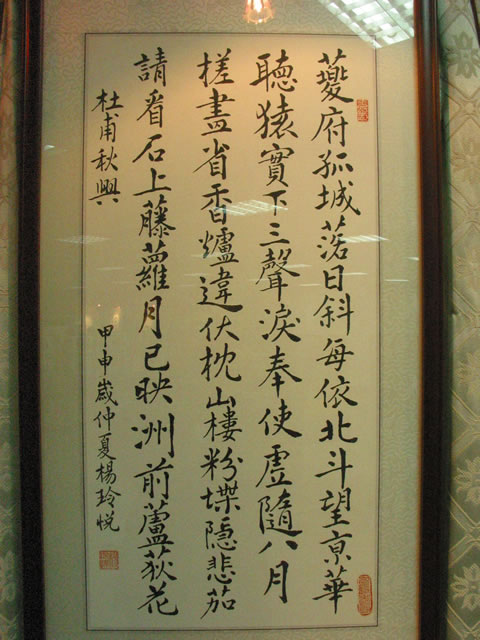 蘷府孤城落日斜每依北斗望亰華
聽猿實下三聲淚奉使虛隨八月
槎盡省香爐違伏枕山樓粉堞隱悲茄
請看石上藤蘿月已映洲前蘆荻花
杜甫秋興
甲申歲仲夏楊玲悅